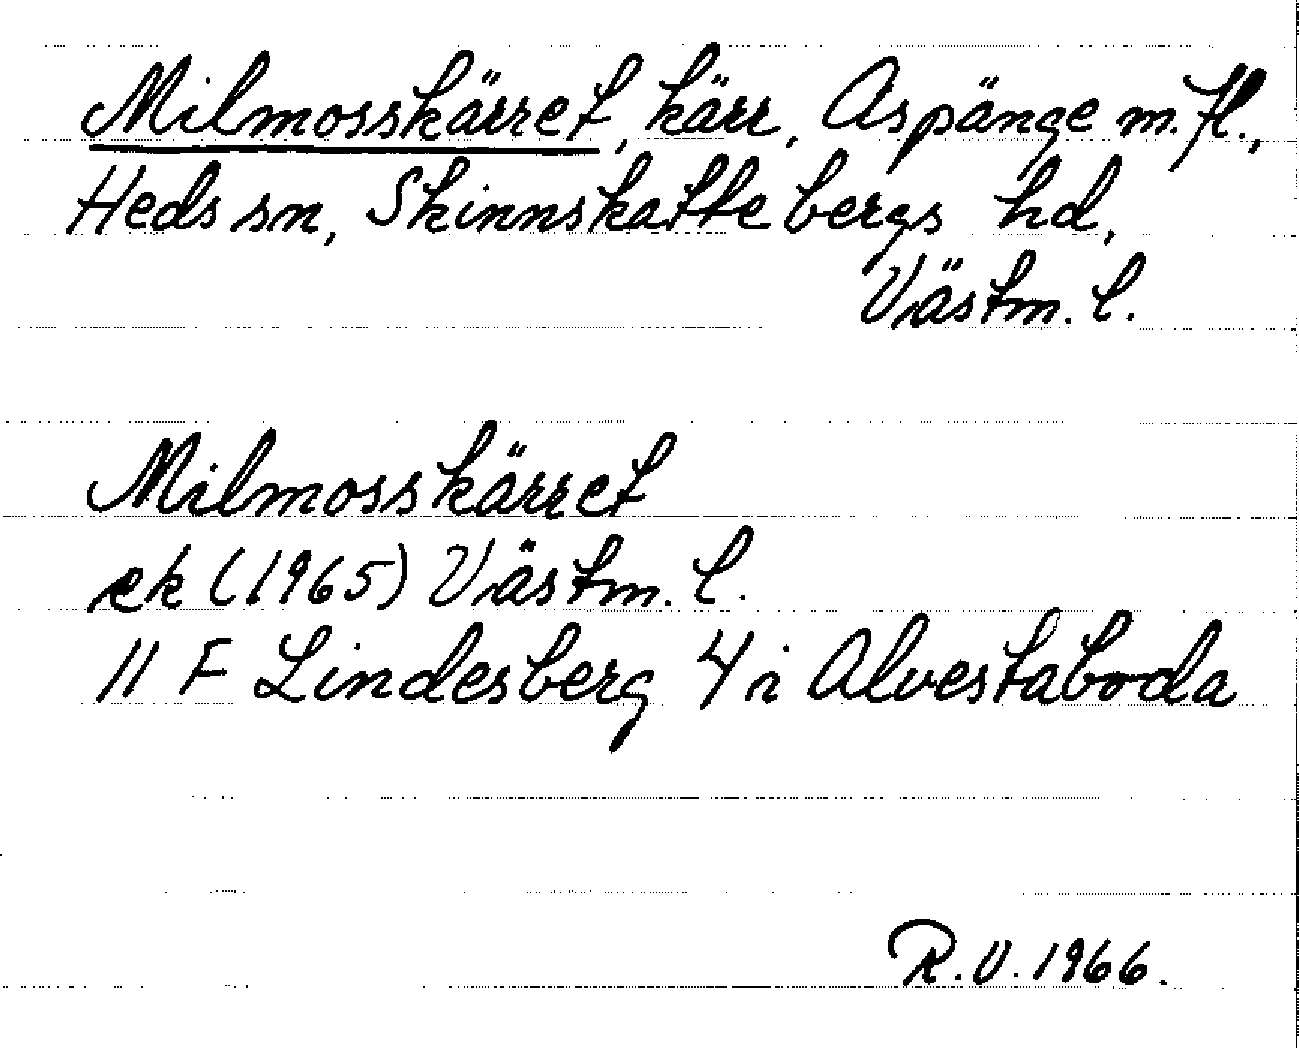 Milmosskärret, kärr, Aspänge m.fl.,
Heds sn, Skinnskattebergs hd,
Västm. l.
Milmosskärret
ek (1965) Västm. l.
11 F Lindesberg 4 i Alvestaboda
R.V. 1966.